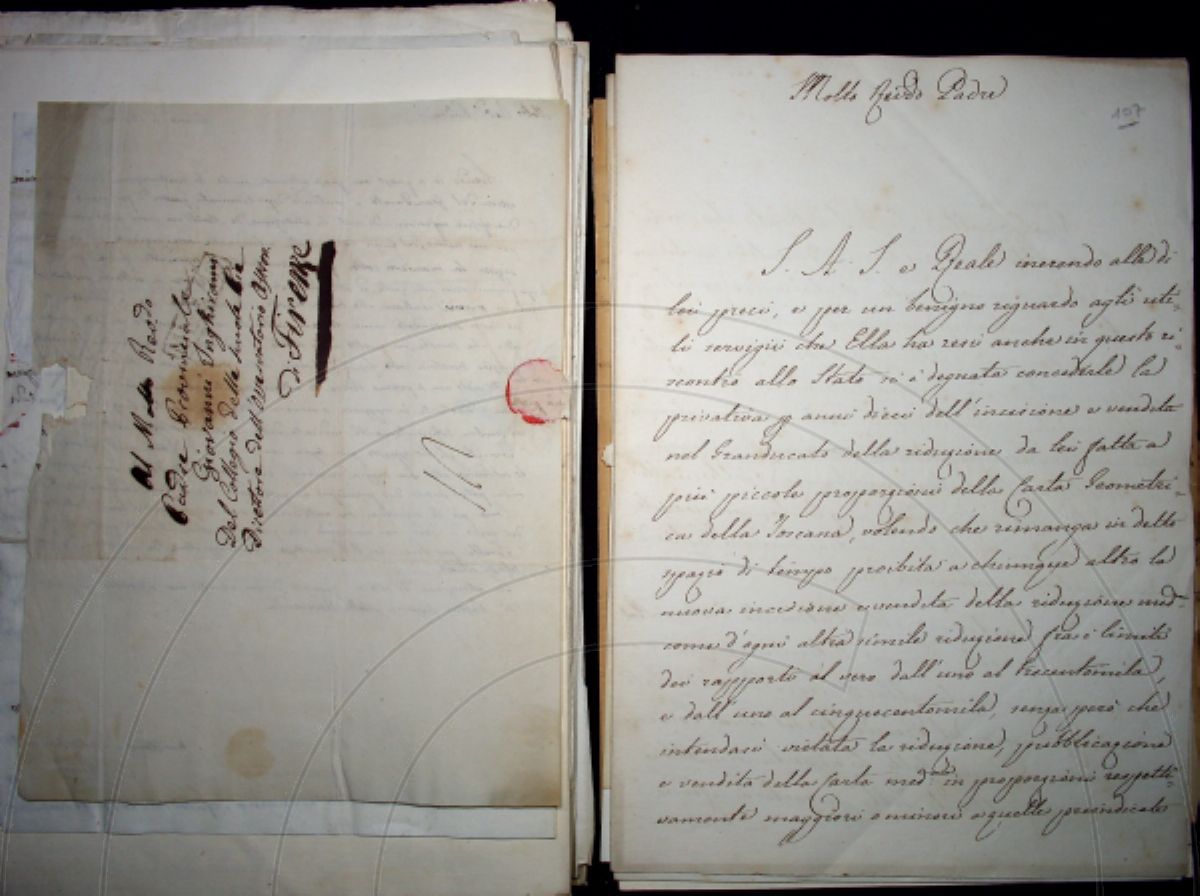 Al Molto Revdo.
Padre Provinciale
Giovanni Inghirami
Del Collegio delle Scuole Pie
Direttore dell'Osservatorio
di Firenze
Molto Revdo Padre
107
S. A. I. e Reale inerendo alle di
lei preci, e per un benigno riguardo agli uti-
li servigii che Ella ha resi anche in questo ri-
scontro allo Stato si è degnata concederle la
privativa p anni dieci dell'incisione e vendita
nel Granducato della riduzione da lei fatta a
più piccole proporzioni della Carta Geometri-
ca della Toscana, volendo che rimanga in detto
spazio di tempo proibita a chiunque altro la
nuova incisione e vendita della riduzione med.
come d'ogni altra simile riduzione fra i limiti
dei rapporti al vero dall'uno al trecentomila,
e dall'uno al cinquecentomila, senza però che
intendasi vietata la riduzione, pubblicazione
e vendita della Carta med. in proporzioni respetti-
vamente maggiori o minori a quelle preindicate